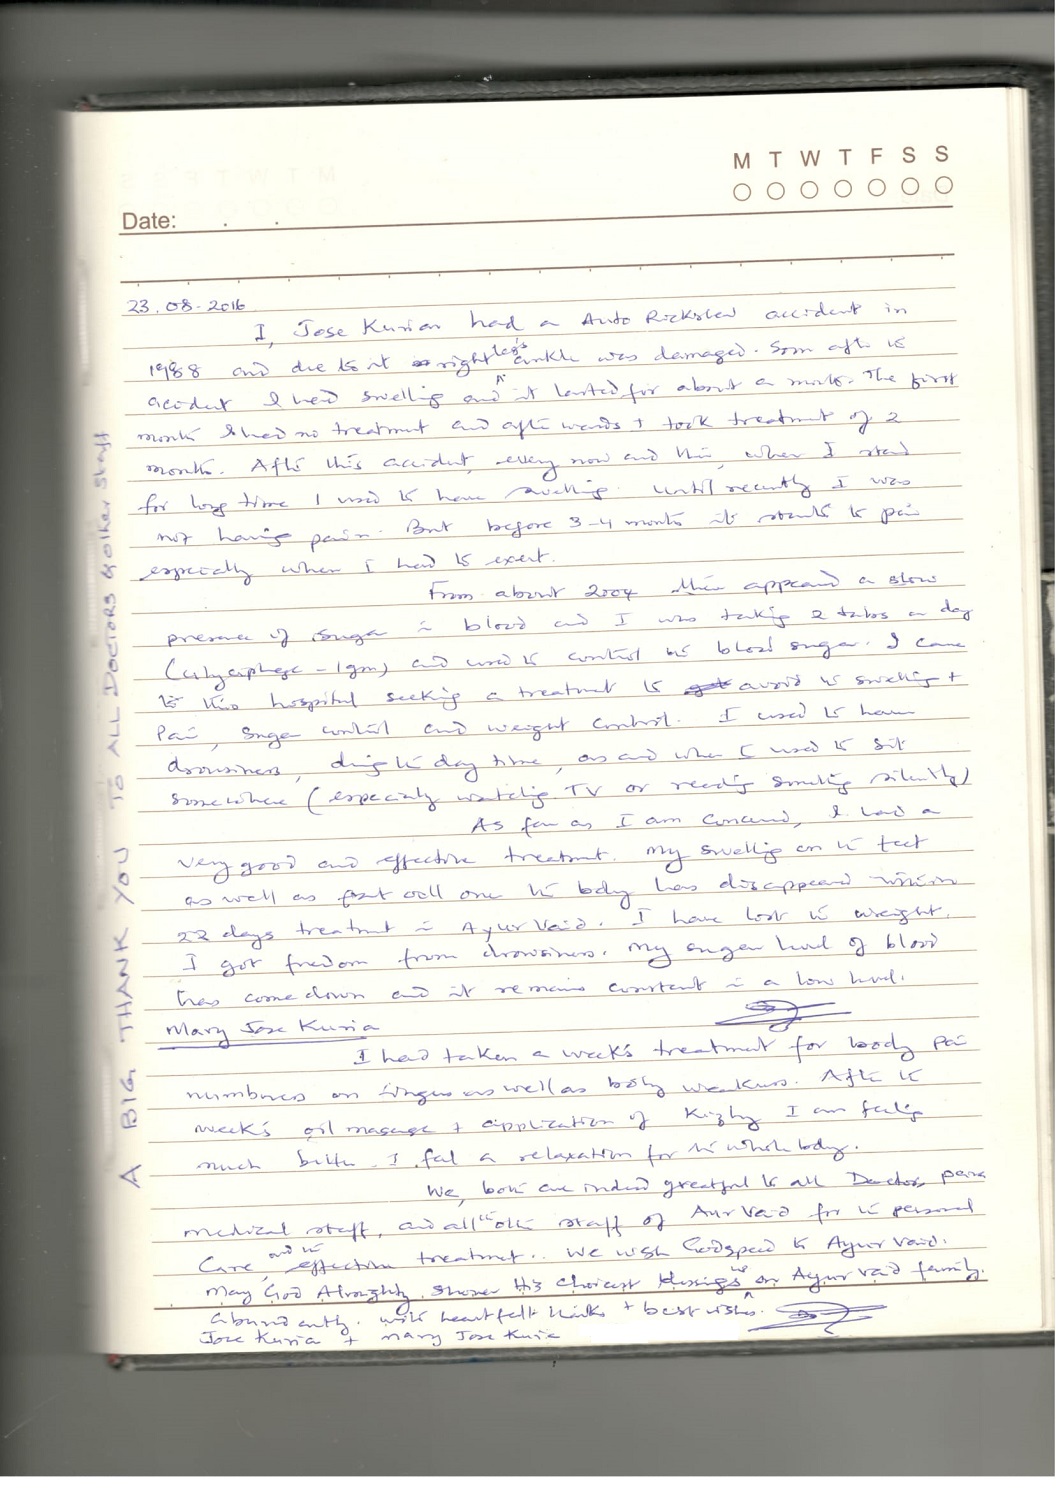 M T W T F S S
Date: . .
23.08.2016
I, Jose Kurian had a Auto Rickshaw accident in
1988 and due to it right leg's ankle was damaged. Soon after is
accident I had swelling and it lasted for about a month. The first
month I had no treatment and after wards I took treatment of 2
months. After this accident, every now and then, when I stand
for long time I used to have swelling. Until recently I was
not having pain. But before 3-4 months it starts to pain
especially when I had to exert.
From about 2004 there appeared a slow
presence of sugar in blood and I was taking 2 tabs a day
(Glyciphage - 1gm) and used to control the blood sugar. I came
to this hospital seeking a treatment to avoid the swelling +
Pain, sugar control and weight control. I used to have
drowsiness, during the day time, as and when I used to sit
somewhere (especially watching TV or reading something silently)
As far as I am concerned, I had a
very good and effective treatment. My swelling on the feet
as well as all over the body has disappeared within
22 days treatment in Ayur Vaid. I have lost the weight.
I got freedom from drowsiness. My sugar level of blood
has come down and it remains constant in a low level.
Mary Jose Kuria
I had taken a week's treatment for body pain
numbness on fingers as well as body weakness. After the
week's oil massage + application of Kizhy I am feeling
much better. I feel a relaxation for the whole body.
We, both are indeed greatful to all Doctors, para
medical staff, and all the other staff of Ayur Vaid for the personal
Care and the effective treatment.. We wish Godspeed to Ayur Vaid.
May God Almighty shower His choicest blessings on Ayur Vaid family.
abundantly. with heartfelt thanks + best wishes.
Jose Kuria + Mary Jose Kuria
A BIG THANK YOU TO ALL DOCTORS & other Staff